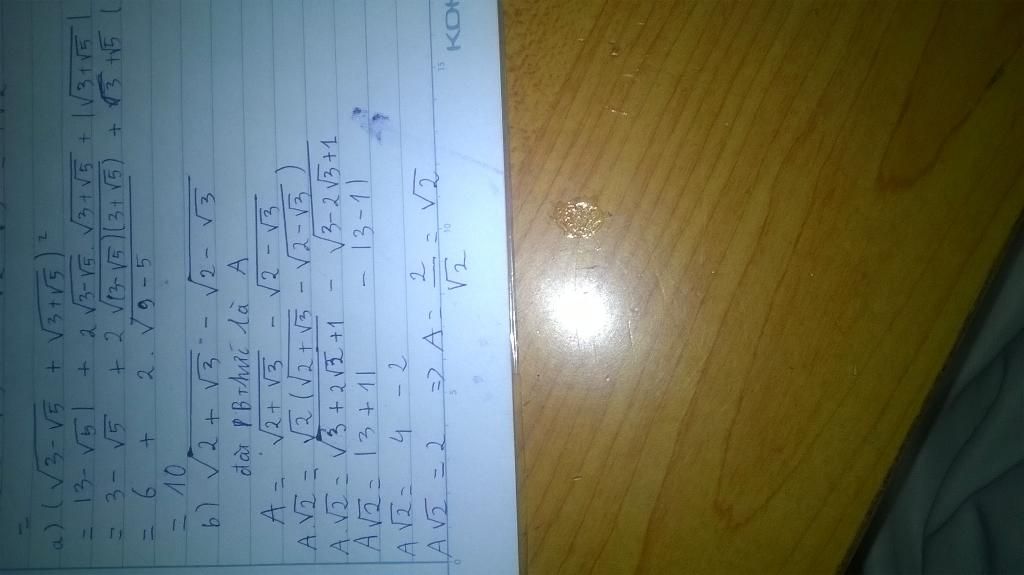 =
a) (√(3-√5) + √(3+√5))²
= |3-√5| + 2√(3-√5).√(3+√5) + |√(3+√5)|
= 3 - √5 + 2√((3-√5)(3+√5)) + √3+√5
= 6 + 2.√(9-5)
= 10
b) √(2+√3) - √(2-√3)
đặt là A
A = √(2+√3) - √(2-√3)
A√2 = √2(√(2+√3) - √(2-√3))
A√2 = √(3+2√2+1) - √(3-2√3+1)
A√2 = |3+1| - |3-1|
A√2 = 4 - 2
A√2 = 2 => A = 2/√2 = √2
0 5 10 15